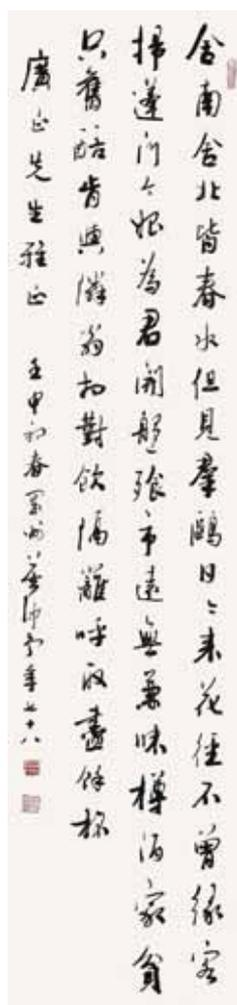 舍南舍北皆春水但見羣鷗日々来花徑不曾緣客
掃蓬門今始為君開盤飧市遠無兼味樽酒家貧
只舊醅肯與鄰翁相對飲隔籬呼取盡餘杯
廣正先生雅正 壬申初春 年七十八